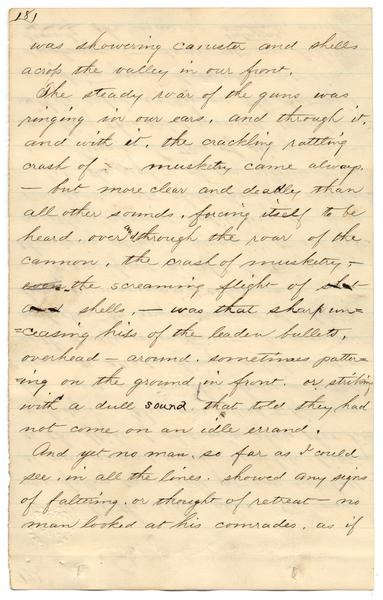 151
was showering canister and shells
across the valley in our front.
The steady roar of the guns was
ringing in our ears, and through it,
and with it, the crackling rattling
crash of musketry came always.
— but more clear and deadly than
all other sounds, forcing itself to be
heard, over and through the roar of the
cannon, the crash of musketry, —
even the screaming flight of shot
and shells, — was that sharp un=
=ceasing hiss of the leaden bullets,
overhead — around. sometimes patter=
=ing on the ground in front. or striking
with a dull sound that told they had
not come on an idle errand.
And yet no man, so far as I could
see, in all the lines. showed any signs
of faltering. or thought of retreat — no
man looked at his comrades. as if